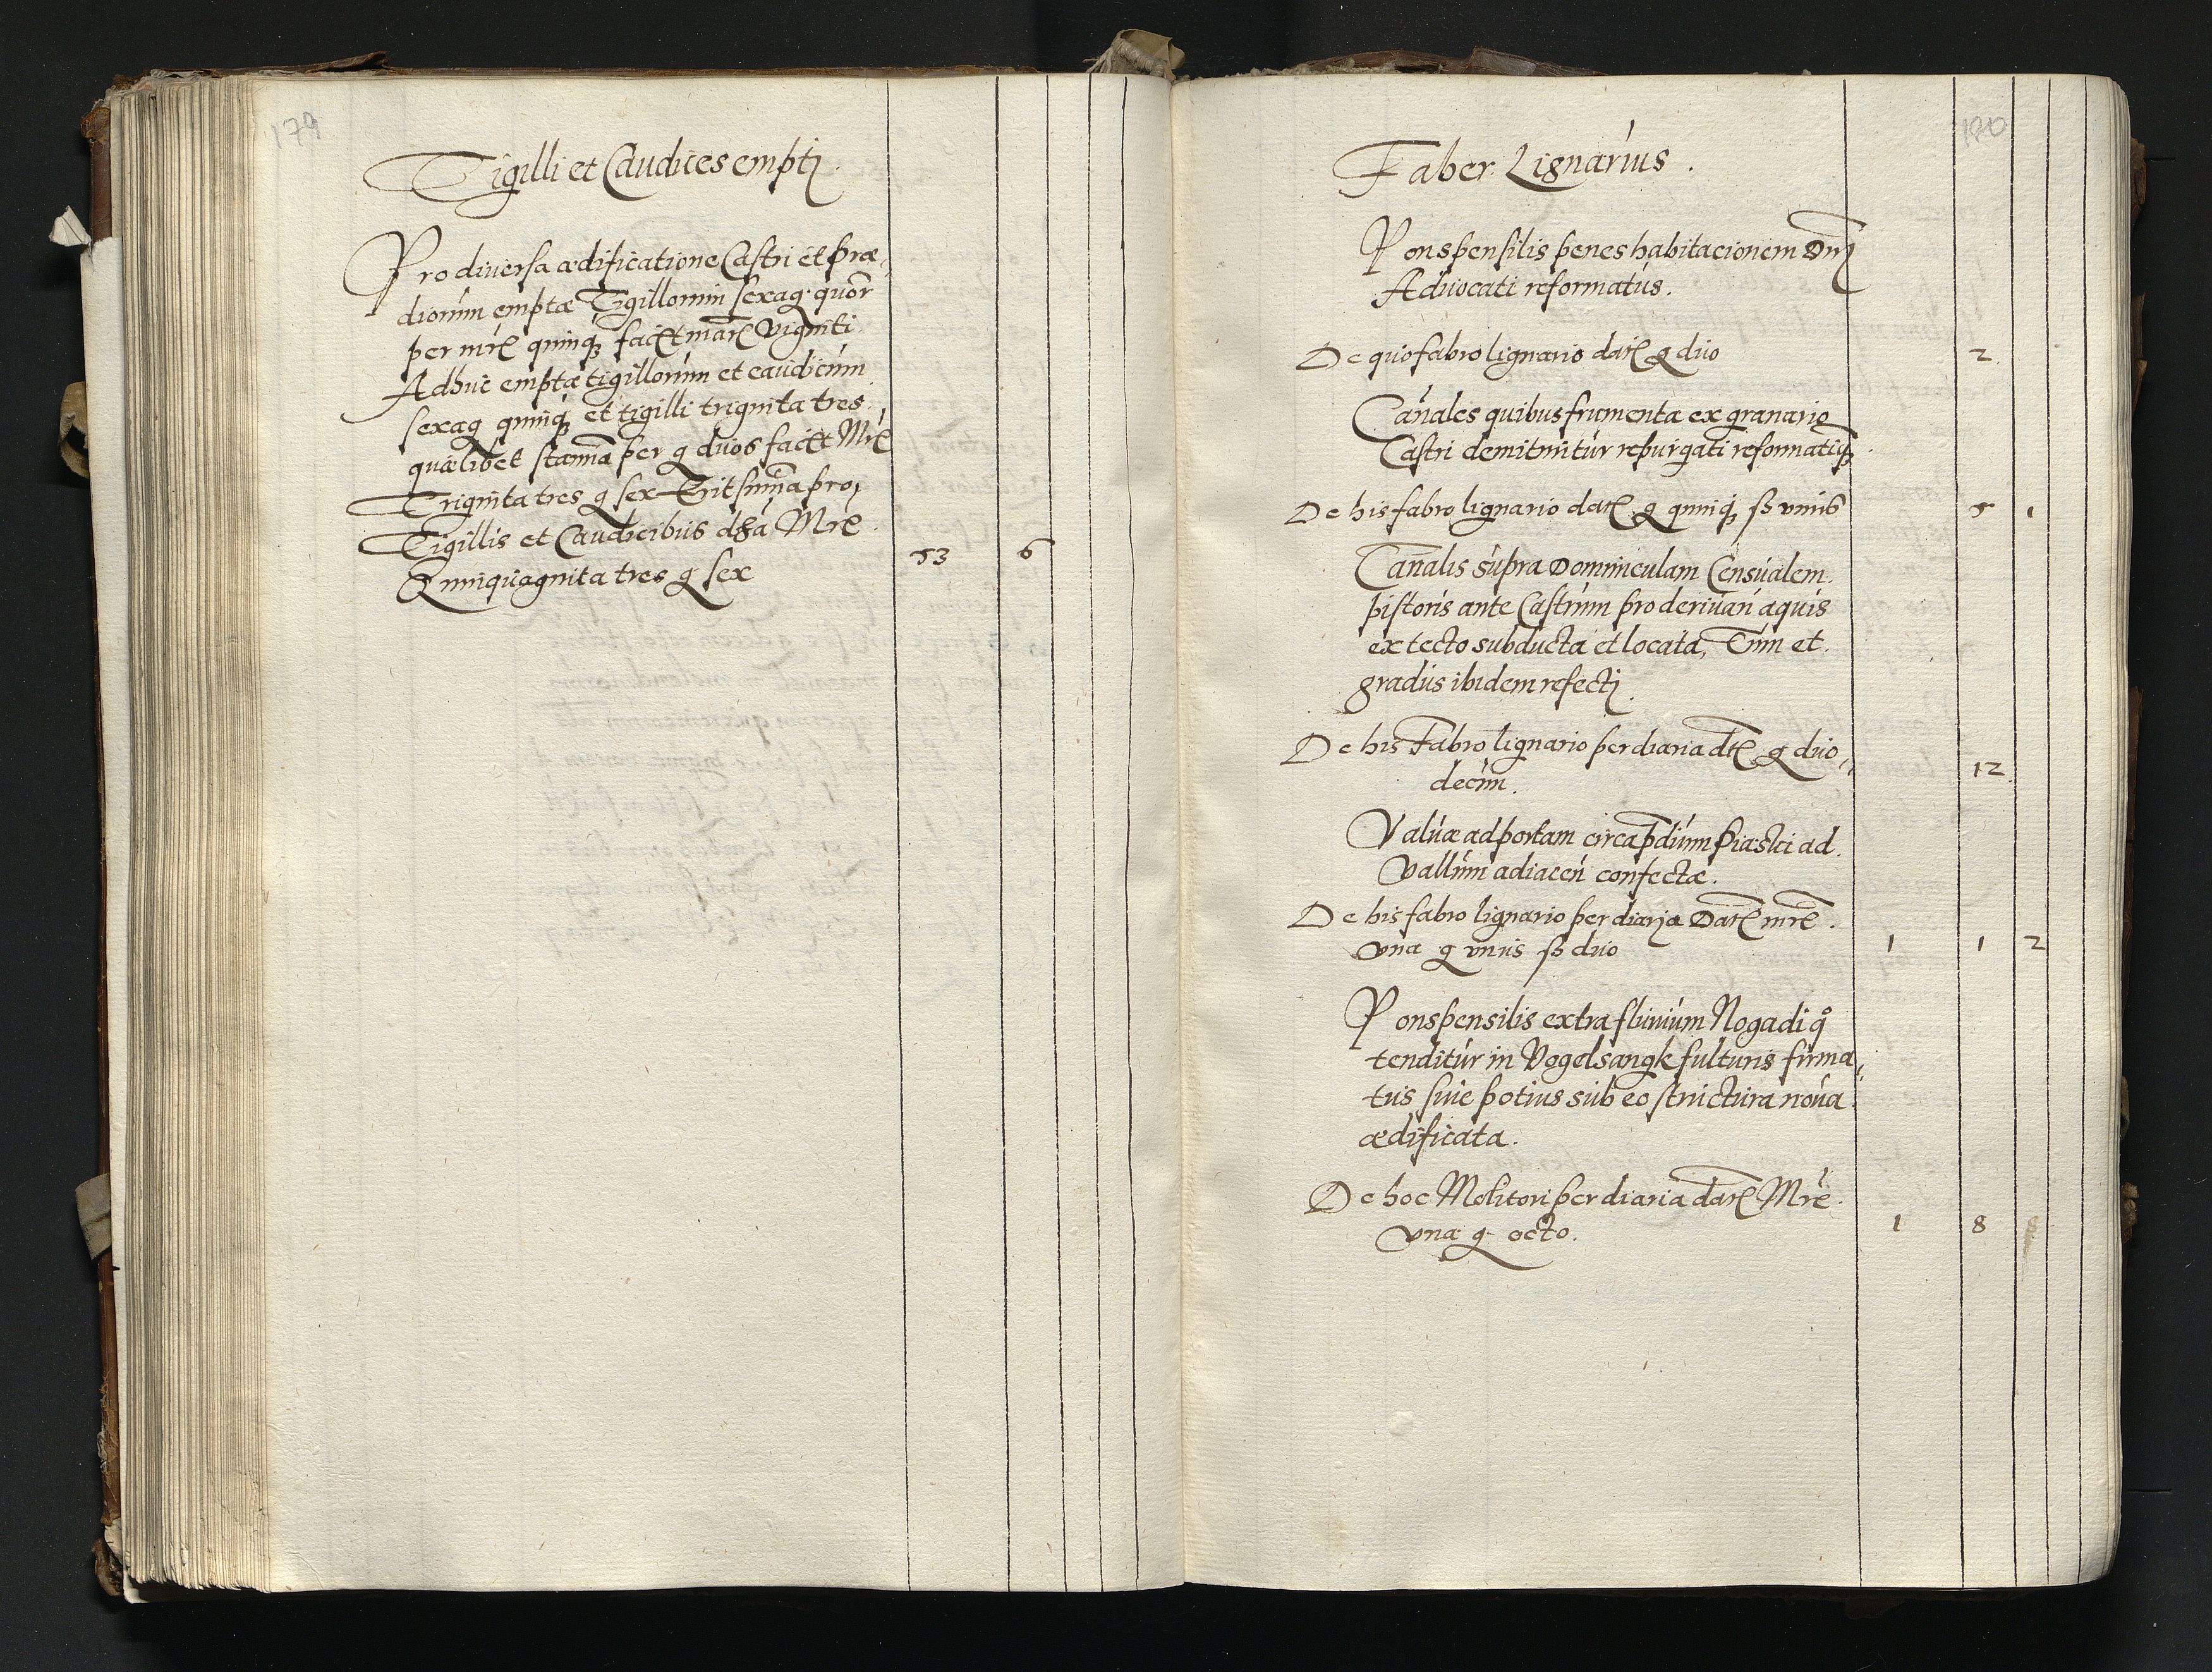 179
Tigilli et Caudices emptj.
Pro diuersa ædificatione Castri et præ,,
diorum emptæ Tigillorum sexag. quor
per mr̃ quinq3 facit mar̃ viginti
Adhuc emptæ tigillorum et caudicum
sexag quinq3 et tigilli triginta tres
quælibet sexagena per g duos facit Mr̃
Triginta tres g sex Erit summa pro,
Tigillis et Caudicibus Mr̃e
Quinquaginta tres g sex
53 6
180
Faber Lignarius.
Pons pensilis penes habitacionem Dnj
Aduocati reformatus.
De quo fabro lignario dat g duo
2
Canales quibus frumenta ex granario
Castri demituntur repurgati reformatiq3
De his fabro lignario dat g quinq3 ß vnus
5 1
Canalis supra Dominiculam Censualem
pistoris ante Castrum pro deriuan aquis
ex tecto subducta et locata, Tum et
gradus ibidem refectj.
De his Fabro lignario per diaria dt g duo,,
decim.
12
Valuæ ad portam circa pdium Piaski ad
Vallum adiacen confectæ.
De his fabro lignario per diaria Dat mr̃e
vna g vnus ß duo
1 1 2
Pons pensilis extra fluuium Nogadi q
tenditur in Vogelsangk fulturis firma,,
tus siue potius sub eo structura noua
ædificata.
De hoc Molitori per diaria dat Mr̃e
vna g octo.
1 8